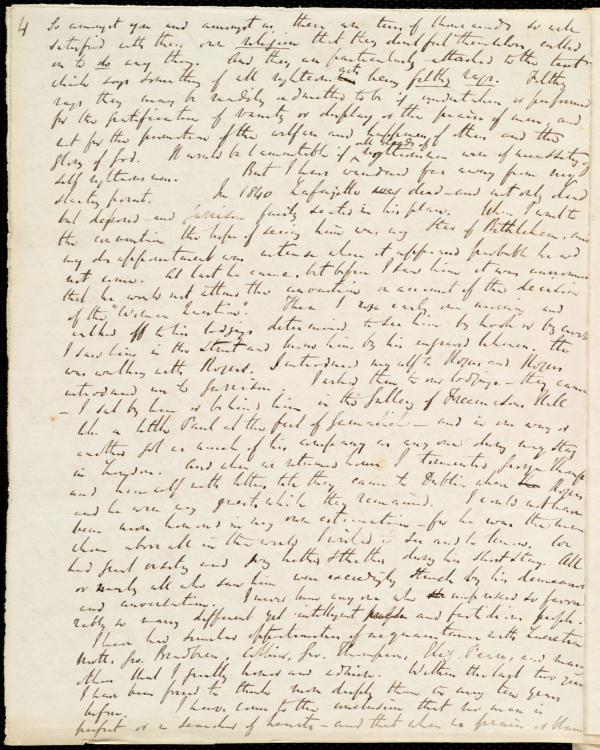 4
So amongst you and amongst us, there are tens of thousands so well
satisfied with their own religion that they doubtful themselves called
on to do any thing. And they are particularly attached to the text
which says something of all righteous gets being filthy rags. Filthy
rags they may be readily admitted to be if undertaken or performed
for the gratification of vanity or display or the praise of men, and
not for the promotion of the welfare and happiness of others and the
glory of God. It would be lamentable if all deeds of righteousness were of necessity of
self righteousness. But I have wandered far away from my
starting point. In 1840 Lafayette was dead - and not only dead
but deposed - and Garrison fairly seated in his place. When I went to
the convention the hope of seeing him was my Star of Bethlehem, and
my disappointment was intense when it appeared probable he wd
not come. At last he came, but before I saw him it was announced
that he would not attend the convention on account of the decision
of the "Woman Question". Then I rose early one morning and
walked off to his lodgings determined to see him by hook or by crook
I saw him in the street and knew him by his engraved likeness. He
was walking with Rogers. I introduced myself to Rogers and Rogers
introduced me to Garrison. I asked them to our lodgings - they came
- I sat by him or behind him, in the Gallery of Freemasons Hall
like a little Paul at the feet of Gamaliel - and in one way or
another got as much of his company as any one during my stay
in London. And when we returned home I tormented George Thompson
and himself with letters till they came to Dublin when Rogers
and he were my guests while they remained. I could not have
been more honored in my own estimation - for he was the man
whom above all in the world I wished to see and to know. We
had great variety and hither & thither during his short stay. All
or nearly all who saw him were exceedingly struck by his demeanor
and conversation. I never knew any one who impressed so favor
rably so many different yet intelligent and fastidious people.
I have had similar opportunities of acquaintance with Lucretia
Mott, Geo. Bradburn, Collins, Geo. Thompson, Eliz. Pease, and many
others that I greatly honor and admire. Within the last two years
I have been forced to think more deeply than in any ten years
before. I have come to the conclusion that no man is
perfect or a searcher of hearts - and that when we praise or blame